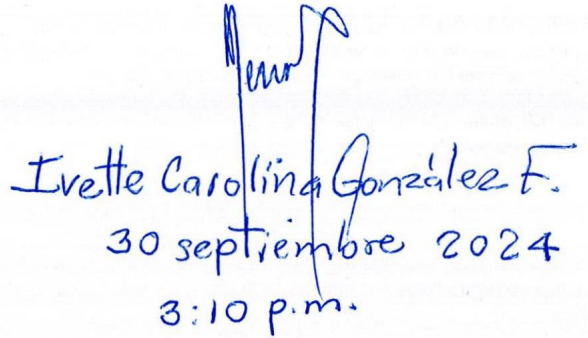 Ivette Carolina González F.
30 septiembre 2024
3:10 p.m.